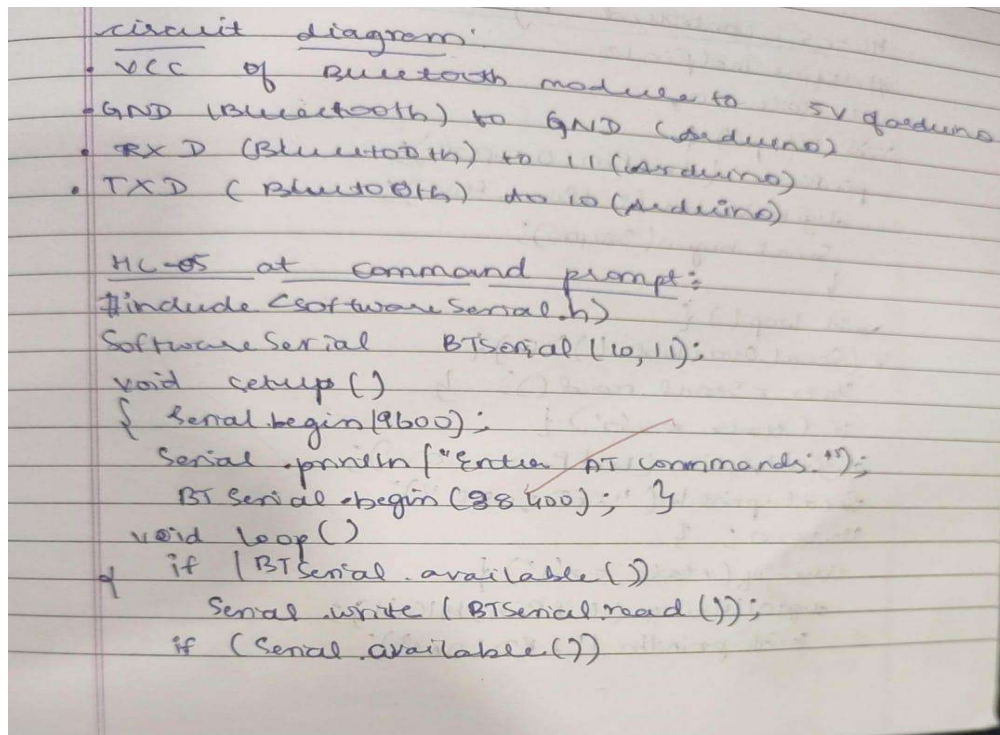 circuit diagram:
• VCC of Bluetooth module to 5V of arduino
• GND (Bluetooth) to GND (Arduino)
• RXD (Bluetooth) to 11 (Arduino)
• TXD (Bluetooth) to 10 (Arduino)
HC-05 at command prompt:
#include <software Serial.h>
Software Serial BTSerial (10, 11);
void setup()
{ Serial.begin(9600);
Serial.println("Enter AT commands:");
BT Serial.begin(38400); }
void loop()
{ if (BTSerial.available())
Serial.write(BTSerial.read());
if (Serial.available())